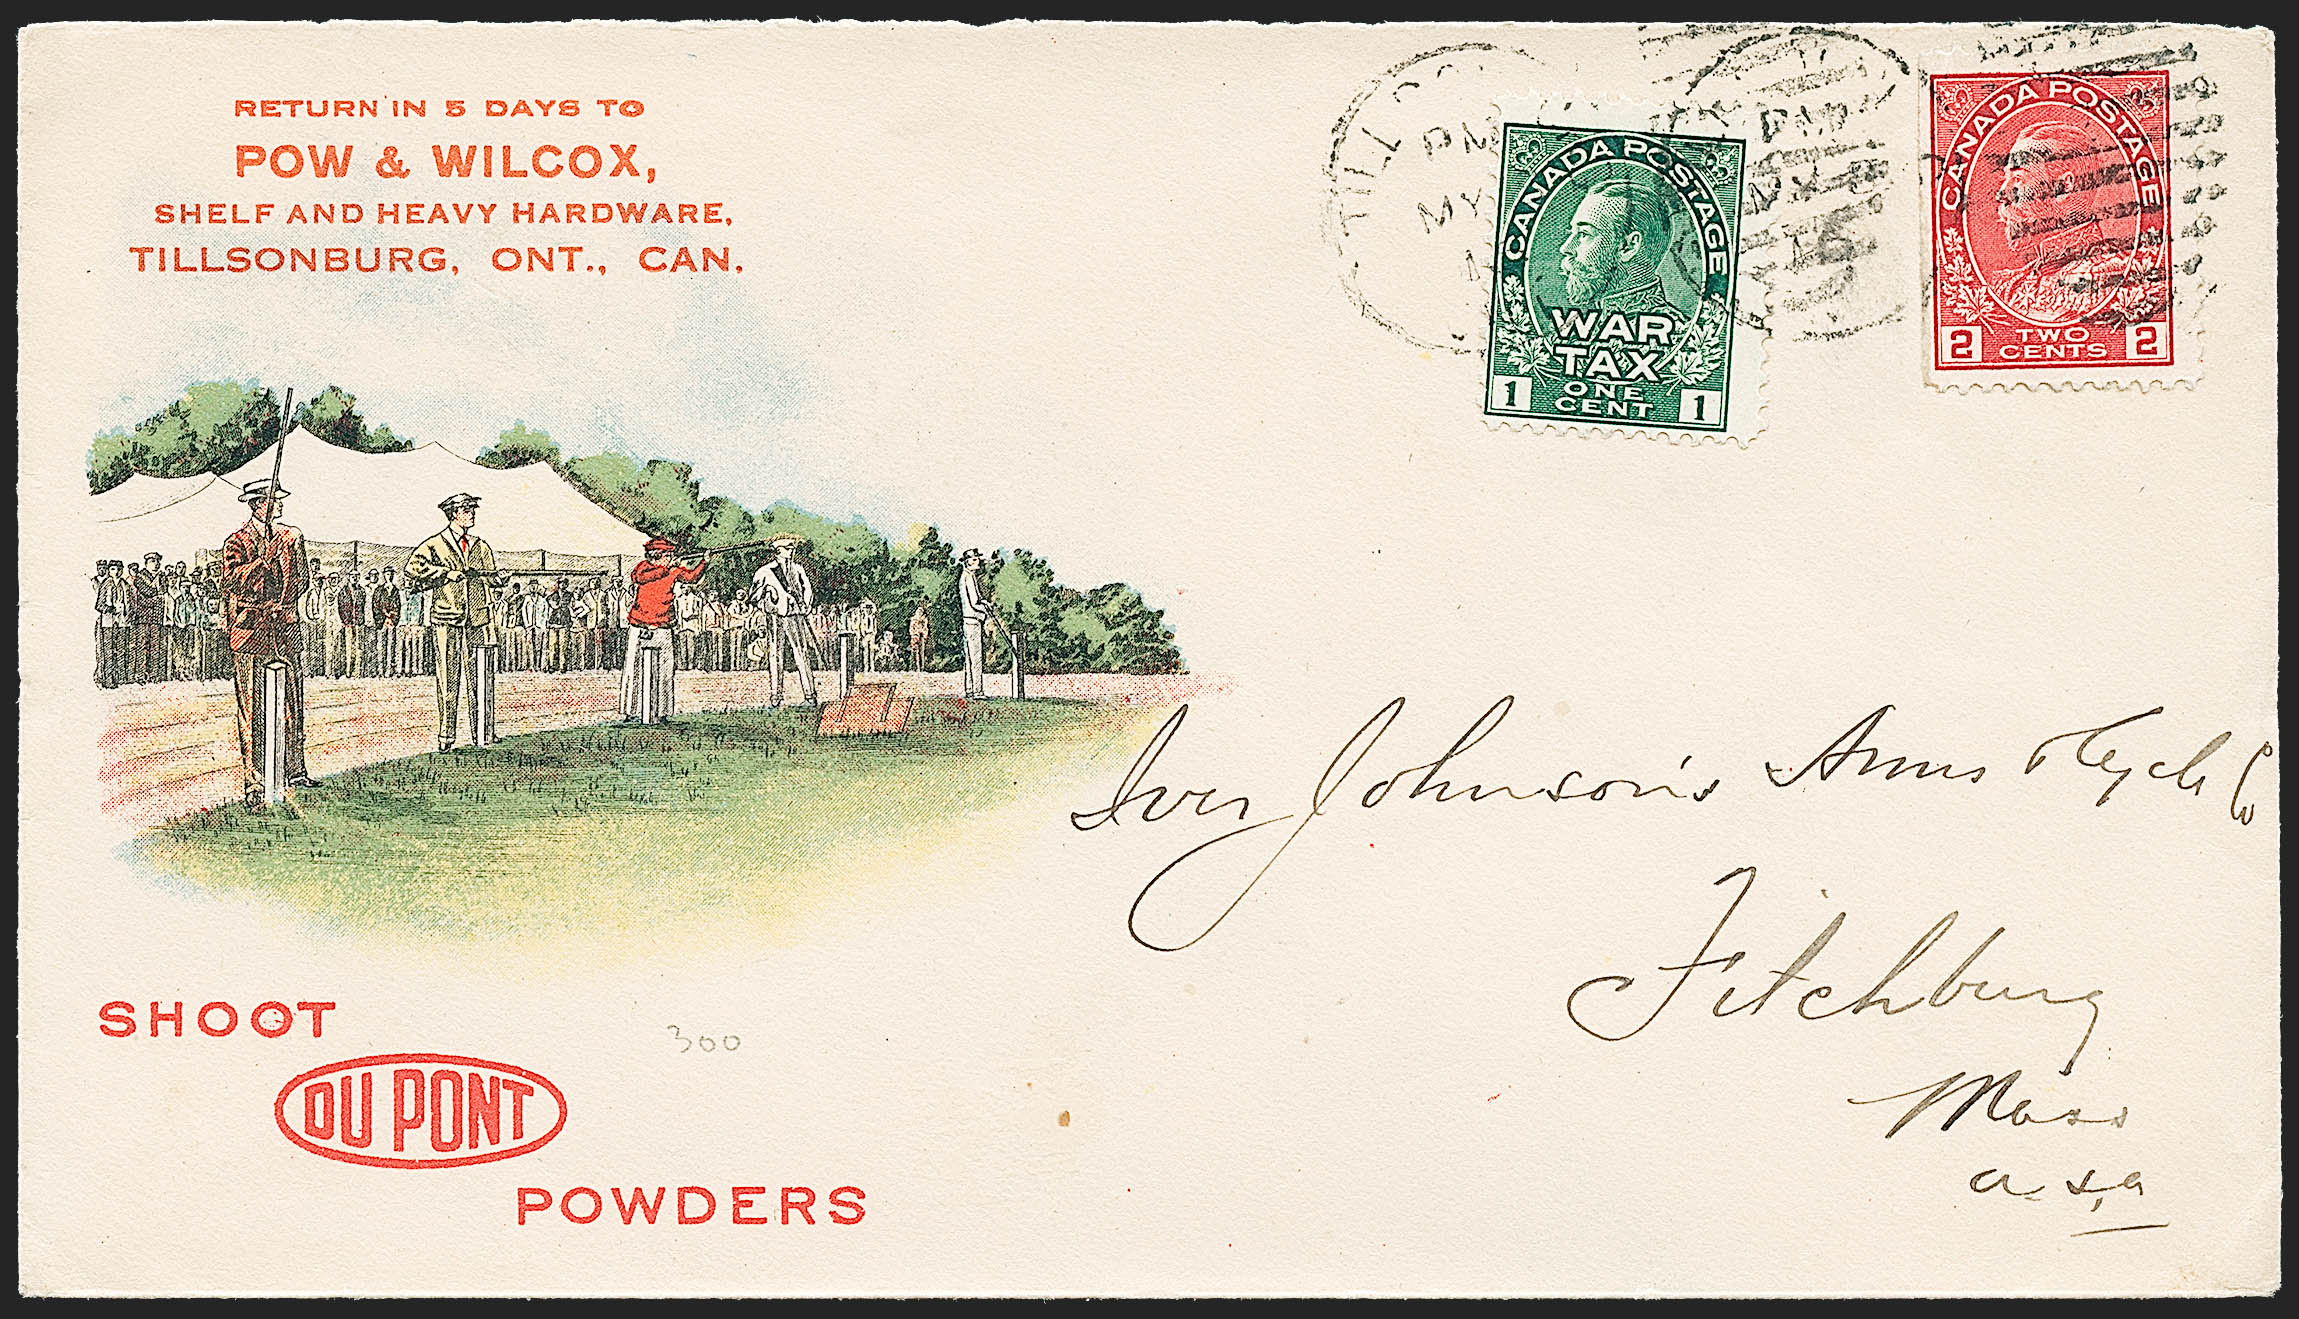 RETURN IN 5 DAYS TO
POW & WILCOX,
SHELF AND HEAVY HARDWARE,
TILLSONBURG, ONT., CAN.
PM
MY
PM
MY
15
CANADA POSTAGE
WAR
TAX
1 ONE CENT 1
CANADA POSTAGE
2 TWO CENTS 2
Iver Johnson's Arms & Cycle Co
Fitchburg
Mass
U.S.A
SHOOT
DU PONT
POWDERS
300